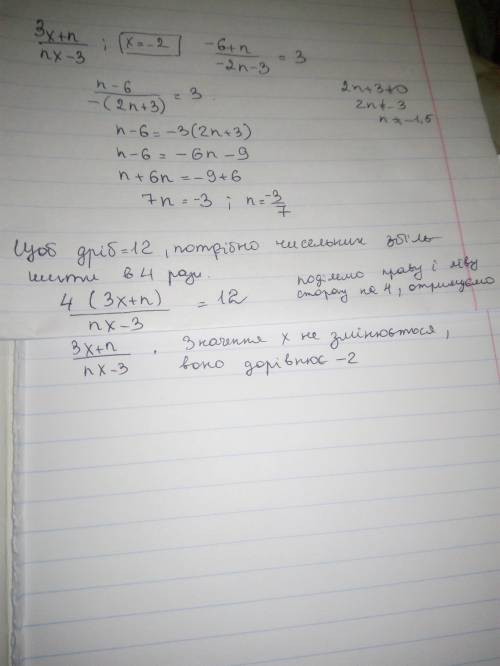 3x+n / nx-3 ; x=-2   -6+n / -2n-3 = 3
n-6 / -(2n+3) = 3   2n+3≠0
2n≠-3
n≠-1,5
n-6=-3(2n+3)
n-6=-6n-9
n+6n=-9+6
7n=-3 ; n=-3/7
Щоб дріб=12, потрібно чисельник збіль
шити в 4 рази.
4(3x+n) / nx-3 = 12   поділемо праву і ліву
сторону на 4, отримуємо
3x+n / nx-3 . Значення x не змінюється,
воно дорівнює -2